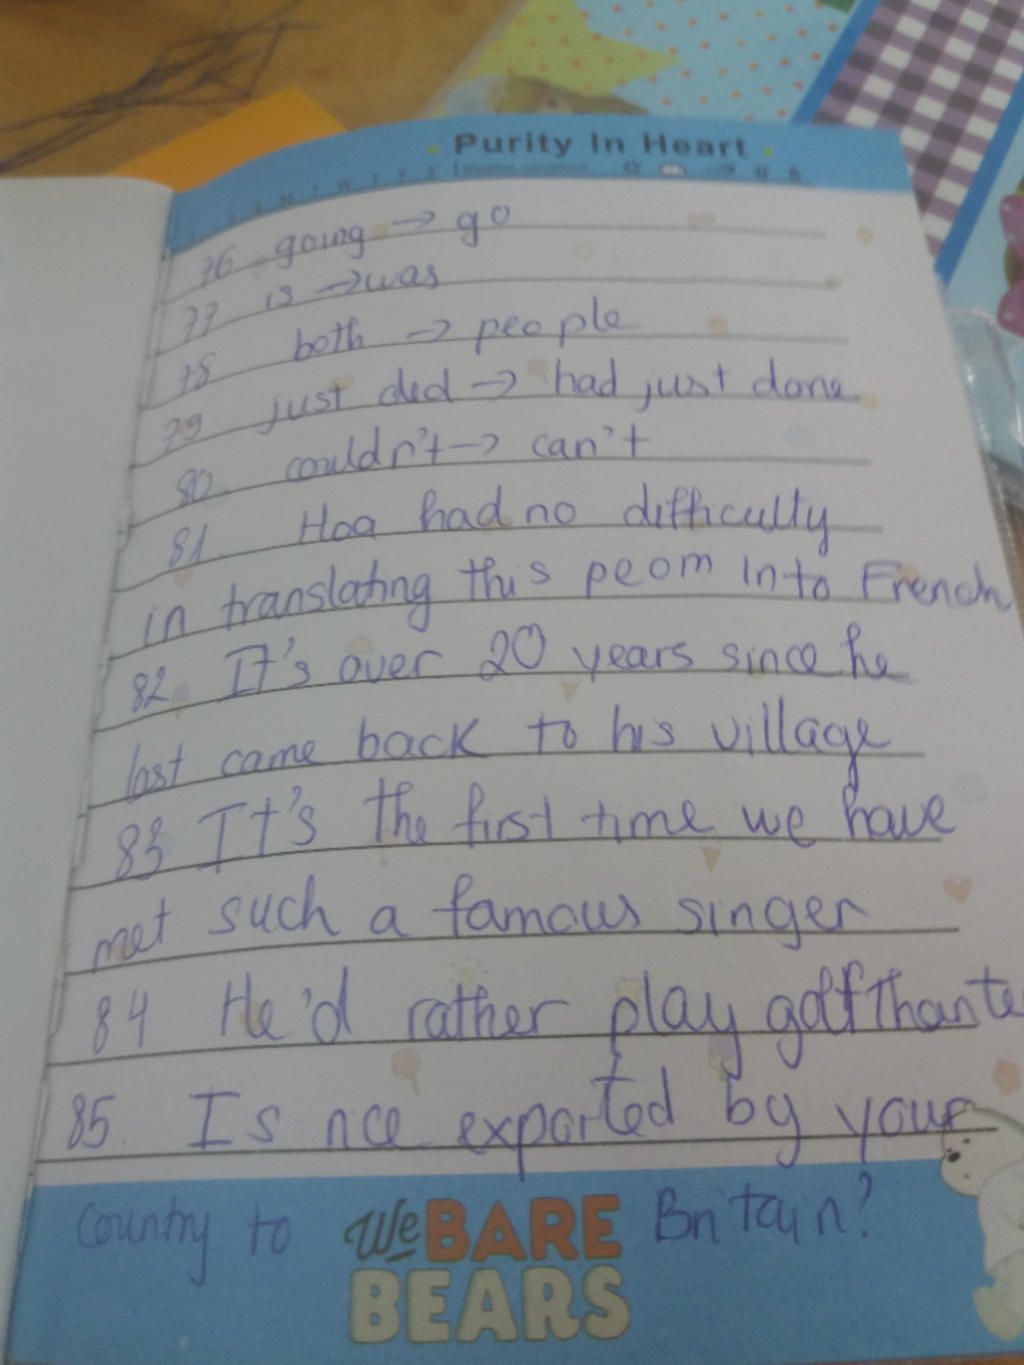 Purity In Heart
76 going → go
77 is → was
78 both → people
79 just did → had just done
80 couldn't → can't
81 Hoa had no difficulty
in translating this peom into French
82 It's over 20 years since he
last came back to his village
83 It's the first time we have
met such a famous singer
84 He'd rather play golf than te
85. Is rice exported by your
country to Britain?
We BARE
BEARS